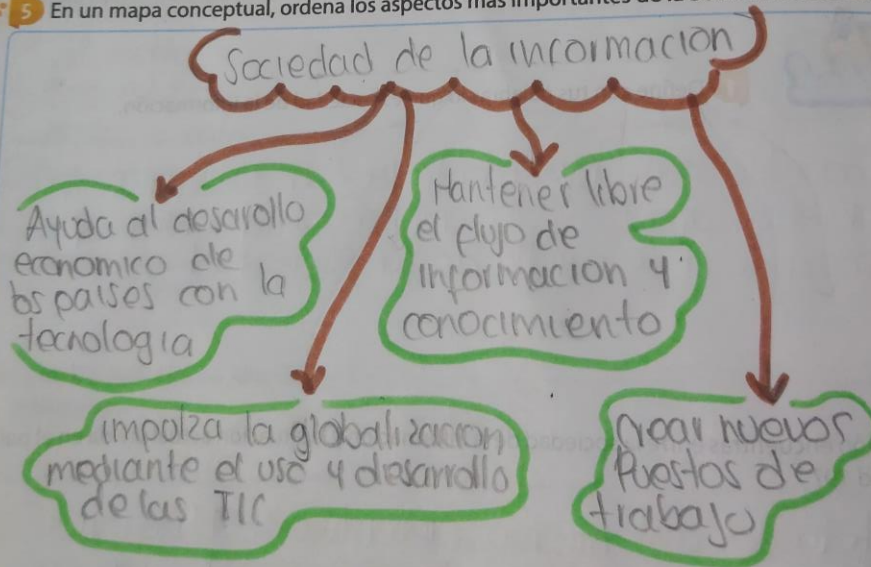 5 En un mapa conceptual, ordena los aspectos más
Sociedad de la informacion
Ayuda al desarollo
economico de
los paises con la
tecnologia
Mantener libre
el flujo de
informacion y
conocimiento
impolza la globalizacion
mediante el uso y desarrollo
de las TIC
Crear nuevos
Puestos de
trabajo